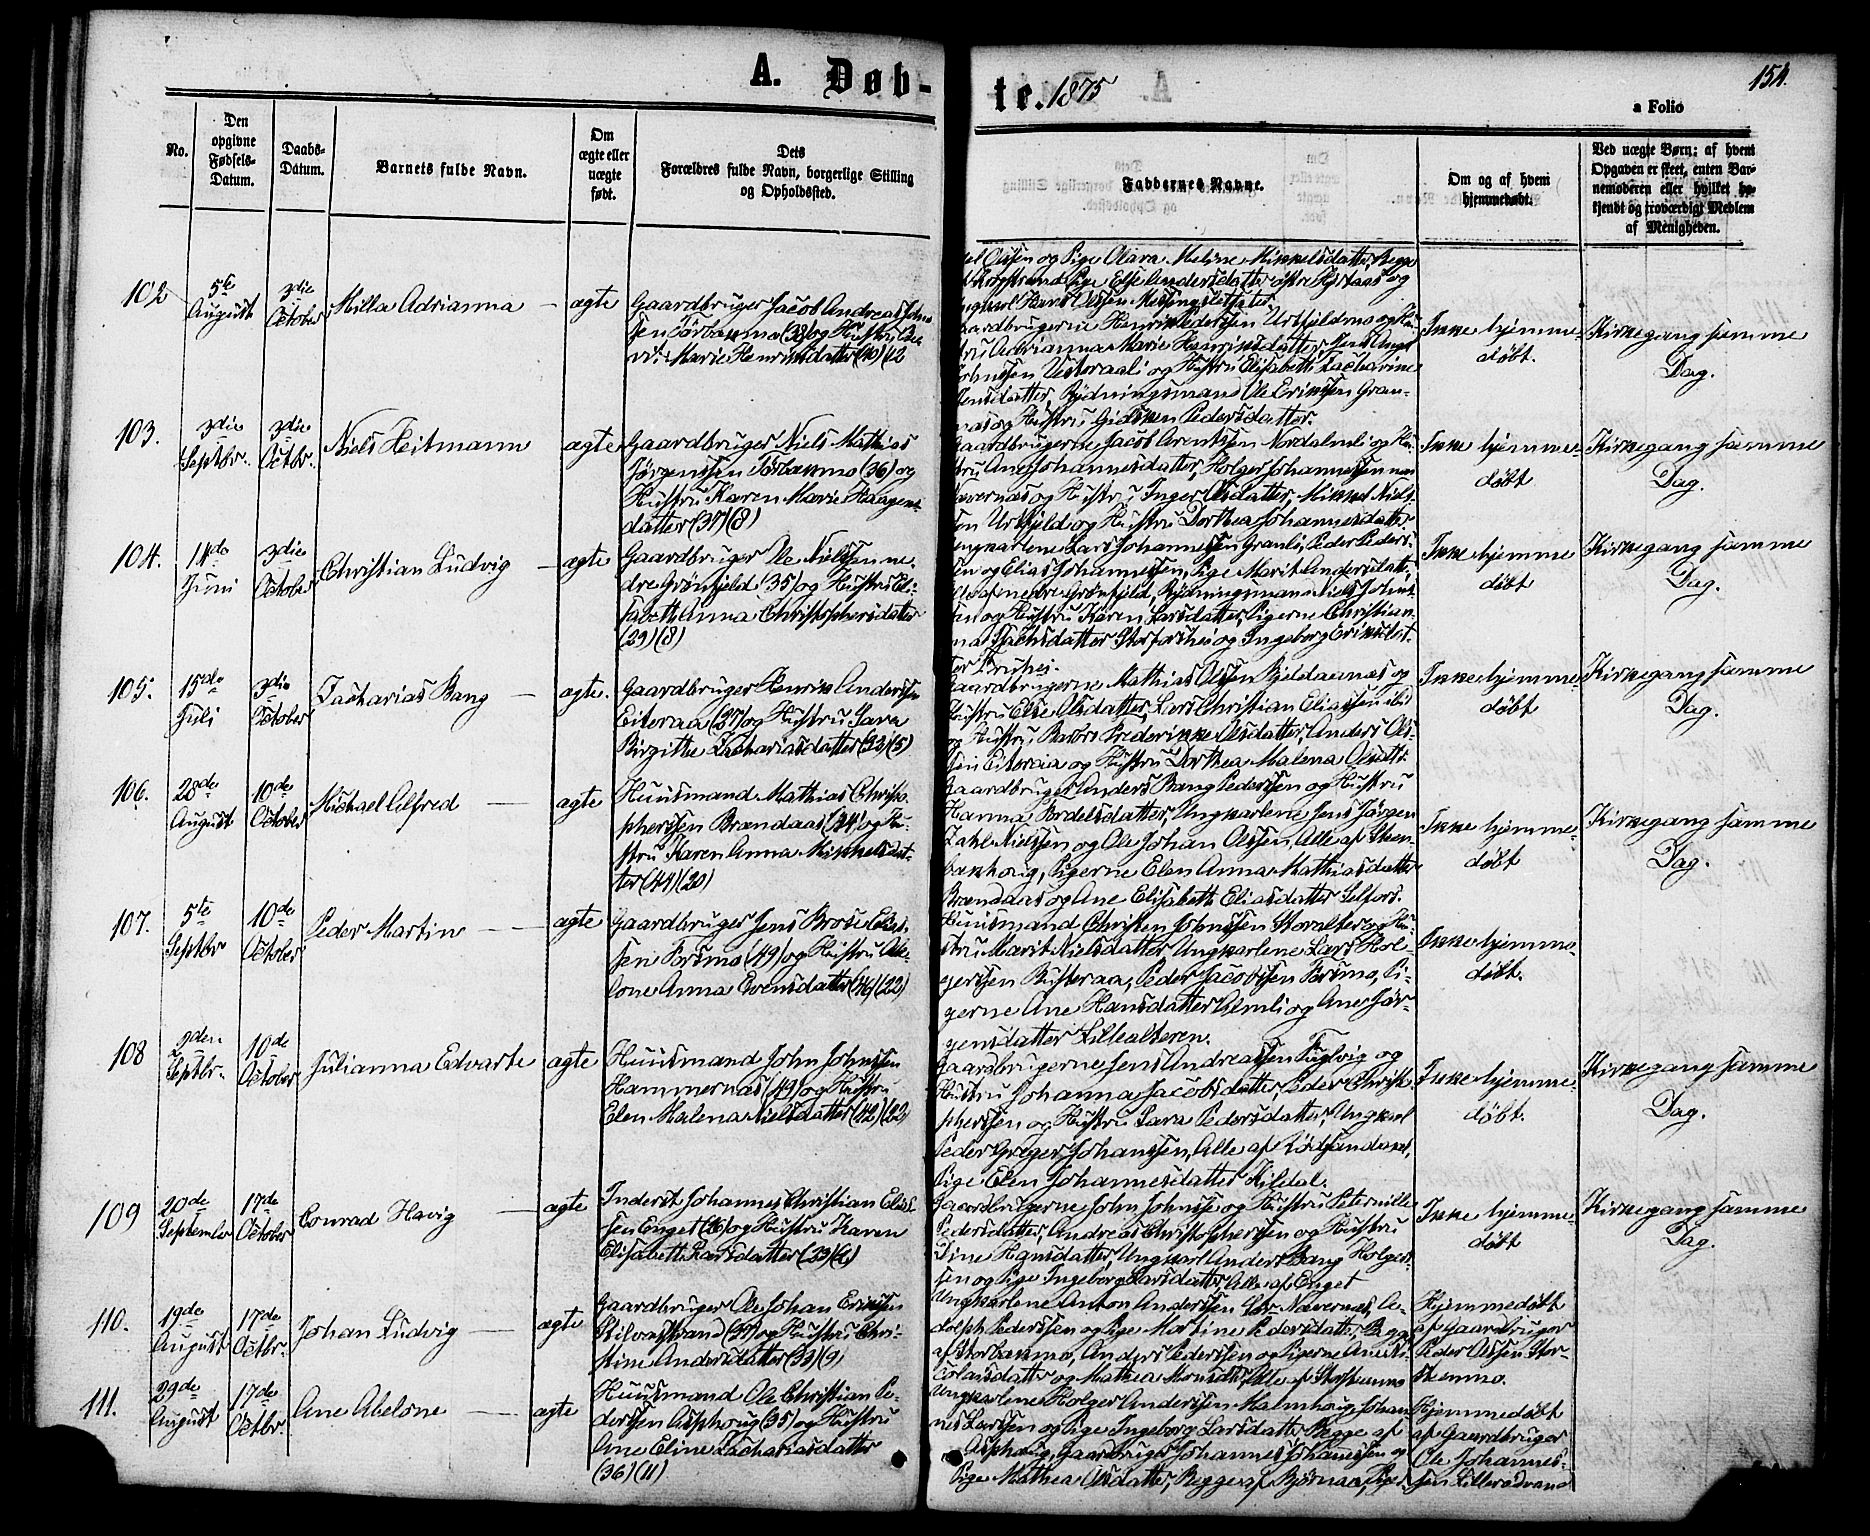 A. Døb-
te. 1875
154.
a Folio
No.
Den
opgivne
Fødsels-
Datum.
Daabs-
Datum.
Barnets fulde Navn.
Om
ægte eller
uægte
født.
Dets
Forældres fulde Navn, borgerlige Stilling
og Opholdssted.
Faddernes Navne.
Om og af hvem
hjemmedøbt.
Ved uægte Børn; af hvem
Opgaven er skeet, enten Bar-
nemoderen eller hvilket be-
kjendt og troværdigt Medlem
af Menigheden.
102
5te
August
3die
October
Milla Adrianna
ægte
Gaardbruger Jacob Andreas Johns-
sen Torbakmo (38) og Hustru
Marie Henriksdatter (40) (12
Olsen og Pige Olava Meline Mikkelsdatter, Begge
Pige Else Andersdatter
Hans Olssen
Gaardbrugerne Henrik Pederssen Urtfjeldmo og Hu-
stru Adrianna Marie Henriksdatter, Jens
Johnssen og Hustru Elisabeth Zacharine
Jensdatter, Rydningsmand Ole Erikssen Gran-
næs og Hustru Pedersdatter.
Ikke hjemme-
døbt.
Kirkegang samme
Dag.
103.
3die
Septbr.
3die
Octbr.
Niels Heitmann
ægte
Gaardbruger Niels Mathias
Jørgenssen Torbakmo (36) og
Hustru Karen Marie Haagens-
datter (37) (8)
Gaardbrugerne Jacob Arentssen og Hu-
stru Ane Johannesdatter, Holger Johannessen
Nævernæs og Hustru Inger Olsdatter, Mikkel Niels-
sen Urtfjeld og Hustru Dorthea Johannesdatter
Ikke hjemme-
døbt
Kirkegang samme
Dag.
104.
14de
Juni
3die
October
Christian Ludvig
ægte
Gaardbruger Ole Nielssen ne-
dre Grønfjeld (35) og Hustru Eli-
sabeth Anna Christophersdatter
(29) (8)
Ungkarlene Lars Johannessen Granli, Peder Peders-
sen og Elias Johannessen, Pige Marit Andersdatter,
Alle af nedre Grønfjeld, Rydningsmand Niels Johns-
sen og Hustru Karen Larsdatter, Pigerne Christian-
na Storforshei og Ingeborg Eriksdat-
ter
Ikke hjemme
døbt
Kirkegang samme
Dag.
105.
15de
Juli
3die
October
Zacharias Bang
ægte.
Gaardbruger Henrik Anderssen
Eiteraa (27) og Hustru Sara
Birgithe Zachariasdatter (33) (5)
Gaardbrugerne Mathias Olssen Bjeldaanæs og
Hustru Else Olsdatter, Lars Christian Eliassen ibid
og Hustru Barbro Frederikke Olsdatter, Anders Ols-
sen Eiteraa og Hustru Dorthea Malena Olsdatt.
Ikke hjemme-
døbt
Kirkegang samme
Dag.
106.
28de
August
10de
October
Michael Alfred
ægte
Huusmand Mathias Christo-
pherssen Brændaas (34) og Hu-
stru Karen Anna Mikkelsdat-
ter (44) (20)
Gaardbruger Anders Bang Pederssen og Hustru
Hanna Pordelsdatter, Ungkarlene Jens Jørgen
Zahl Nielssen og Ole Johan Olssen, Alle af Steen-
bakhoug, Pigerne Elen Anna Mathiasdatter
Brændaas og Ane Elisabeth Eliasdatter Selfors.
Ikke hjemme-
døbt
Kirkegang samme
Dag.
107.
5te
Septbr
10de
October
Peder Martin
ægte
Gaardbruger Jens Brose Elias-
sen Forsmo (49) og Hustru Abe-
lone Anna Evensdatter (46) (22)
Huusmand Christen Johnssen Storalteren og Hu-
stru Marit Nielsdatter, Ungkarlene Lars Hol-
gerssen Busteraa, Peder Jacobssen Forsmo, Pi-
gerne Ane Hansdatter Almli og Ane Jør-
gensdatter Lillealteren.
Ikke hjemme-
døbt.
108
2den
Septbr.
10de
October
Julianna Edvarte
ægte
Huusmand John Johnssen
Hammernæs (49) og Hustru
Elen Malena Nielsdatter (42) (22)
Gaardbrugerne Jens Andreassen Fuglvig og
Hustru Johanna Jacobsdatter, Peder Christo-
pherssen og Hustru Sara Pedersdatter, Ungkarl
Peder Greger Johanssen, Alle af Rødsandaxel,
Pige Elen Johannesdatter Kildal.
Ikke hjemme-
døbt.
Kirkegang samme
Dag.
109
20de
September
17de
October
Conrad Havig
ægte
Inderst Johannes Christian Elias-
sen Enget (26) og Hustru Karen
Elisabeth Larsdatter (29)
Gaardbrugerne John Johnsse og Hustru Peternille
Pedersdatter, Andreas Christopherssen og Hustru
Stine Hansdatter, Ungkarl Anders Bang Holgers-
sen og Pige Ingeborg Larsdatter Alle af Enget
Ikke hjemme-
døbt
Kirkegang samme
Dag.
110.
19de
August
17de
Octbr.
Johan Ludvig
ægte
Gaardbruger Ole Johan Erikssen
Stilvasstrand (37) og Hustru Chri-
stine Andersdatter (33) (9)
Ungkarlene Anton Anderssen Nævernæs, A-
dolph Pederssen og Pige Martine Pedersdatter, Begge
af Storbakmo, Anders Pederssen og Pigerne Ane Ni-
colaisdatter og Mathea Monsdtr, Alle af
Hjemmedøbt
af Gaardbruger
Peder Olssen Stor-
111.
29de
August
17de
Octbr.
Ane Abelone
ægte
Huusmand Ole Christian Pe-
derssen Asphoug (35) og Hustru
Ane Eline Zachariasdatter
(36) (11)
Ungkarlene Holger Anderssen Malmhoug, Johan-
nes Larssen og Pige Ingeborg Larsdatter, Begge af
Asphoug, Gaardbruger Johannes Johanessen og
Pige Mathea Olsdatter, Begge af Bjørnaa,
Hjemmedøbt
af Gaardbruger
Ole Johannes-
sen Lillerødvand